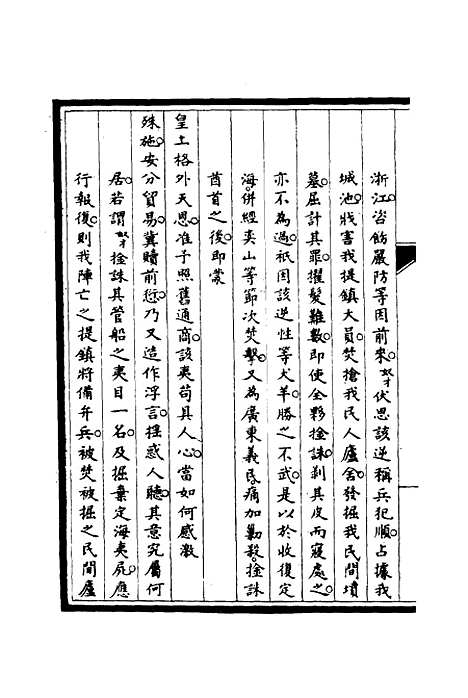 浙江咨飭嚴防等因前來奴才伏思該逆稱兵犯順占據我
城池戕害我提鎮大員焚搶我民人廬舍發掘我民間墳
墓屈計其罪擢髮難數即使全夥捡誅剥其皮而寢處之
亦不為過祇因該逆性等犬羊勝之不武是以於收復定
海併經奕山等節次焚擊又為廣東義民痛加勦殺捡誅
酋首之後即蒙
皇上格外天恩准予照舊通商該夷苟具人心當如何感激
殊施安分貿易冀贖前愆乃又造作浮言揺惑人聽其意究屬何
居若謂奴才捡誅其管船之夷目一名及掘棄定海夷屍應
行報復則我陣亡之提鎮將備弁兵被焚被掘之民間廬